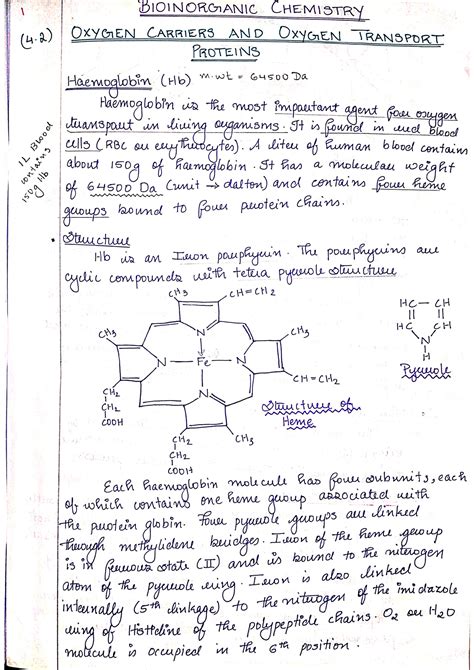 1
BIOINORGANIC CHEMISTRY
(4.2) OXYGEN CARRIERS AND OXYGEN TRANSPORT
PROTEINS
Haemoglobin (Hb) m.wt = 64500 Da
Haemoglobin is the most important agent for oxygen
transport in living organisms. It is found in red blood
cells (RBC or erythrocytes). A liter of human blood contains
about 150g of haemoglobin. It has a molecular weight
of 64500 Da (unit → dalton) and contains four heme
groups bound to four protein chains.
1L Blood
contains
150g Hb
Structure
Hb is an Iron porphyrin. The porphyrins are
cyclic compounds with tetra pyrrole structure
CH3
CH=CH2
CH3
CH3
N
N
Fe
N
N
CH=CH2
CH2
CH2
COOH
CH3
CH2
CH2
COOH
Structure of
Heme
HC — CH
HC
CH
N
H
Pyrrole
Each haemoglobin molecule has four subunits, each
of which contains one heme group associated with
the protein globin. Four pyrrole groups are linked
through methylidene bridges. Iron of the heme group
is in ferrous state (II) and is bound to the nitrogen
atom of the pyrrole ring. Iron is also linked
internally (5th linkage) to the nitrogen of the imidazole
ring of Histidine of the polypeptide chains. O2 or H2O
molecule is occupied in the 6th position.